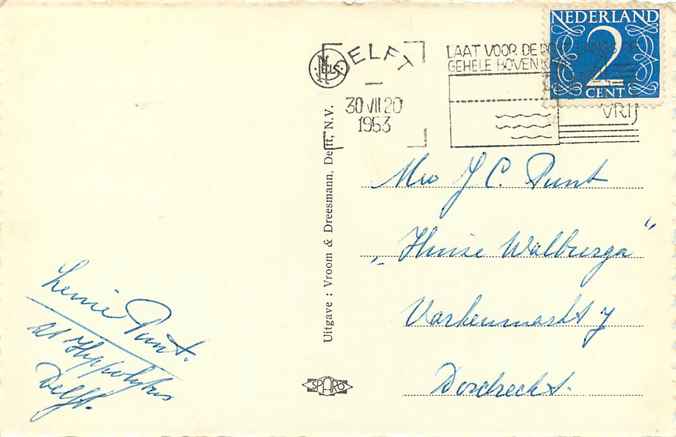 NEDERLAND
2
CENT
DELFT
30 VII 20
1953
LAAT VOOR DE
GEHELE BOVEN
VRIJ
Uitgave : Vroom & Dreesmann, Delft, N.V.
SPARO
Mw J C. Punt
„Huize Walburga"
Varkenmarkt 7
Dordrecht.
Punt.
St Hippolytus
Delft.